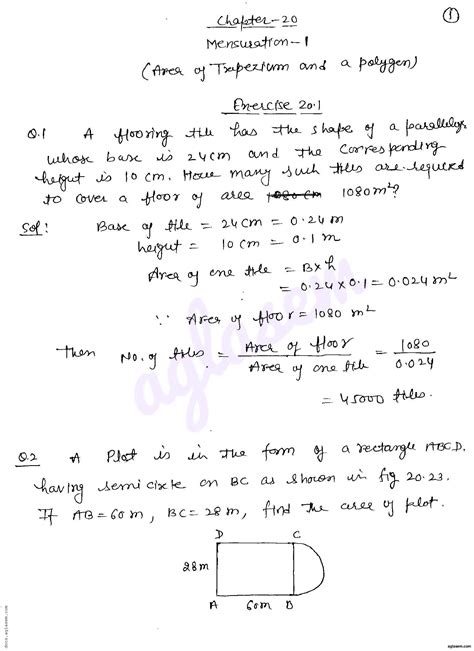 Chapter-20
①
Mensuration-1
(Area of Trapezium and a polygon)
Exercise 20.1
Q.1 A flooring tile has the shape of a parallelogram
whose base is 24cm and the corresponding
height is 10 cm. How many such tiles are required
to cover a floor of area 1080 cm 1080m²?
Sol: Base of tile = 24cm = 0.24m
height = 10 cm = 0.1 m
Area of one tile = B×h
= 0.24×0.1 = 0.024 m²
∵ Area of floor = 1080 m²
Then No. of tiles = Area of floor / Area of one tile = 1080 / 0.024
= 45000 tiles.
Q.2 A Plot is in the form of a rectangle ABCD.
having semicircle on BC as shown in fig 20.23.
If AB=60m, BC=28m, find the area of plot.
D C
28m
A 60m B
aglasem
docs.aglasem.com
aglasem.com